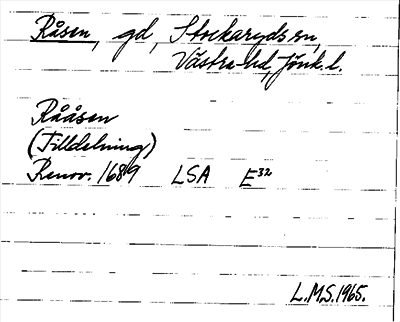 Råsen, gd, Stockaryds sn,
Västra hd, Jönk. l.
Rååsen
(Tilldelning)
Renov. 1689 LSA E³²
L.M.S. 1965.